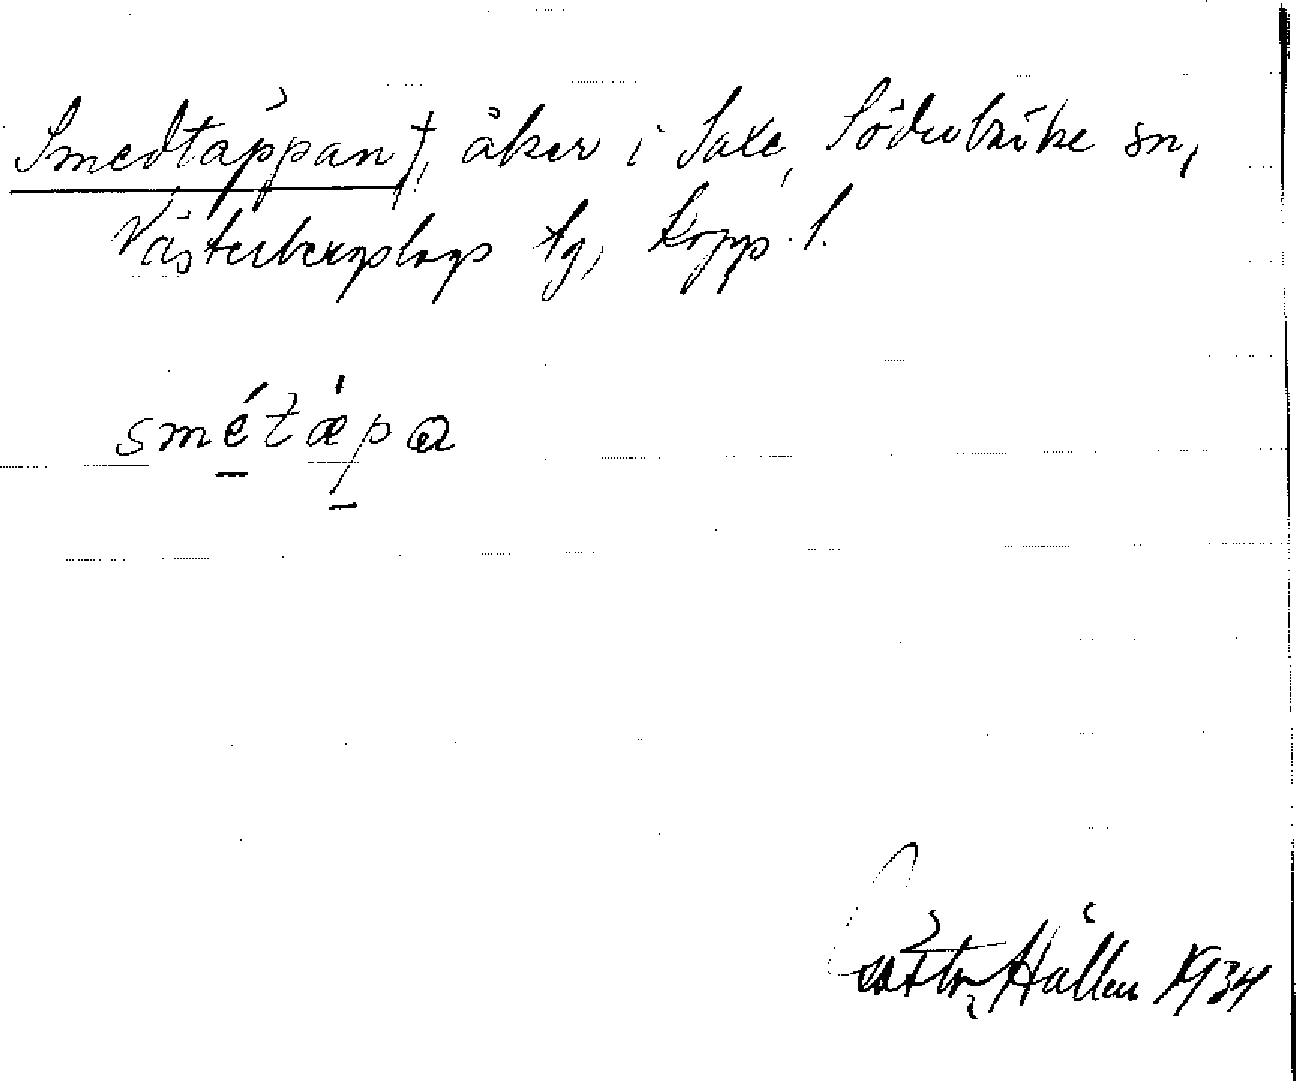 Smedtäppan †, åker i Saxe, Söderbärke sn,
Västerbergslags tg, Kopp. l.
smétǽpa
Hällen 1934